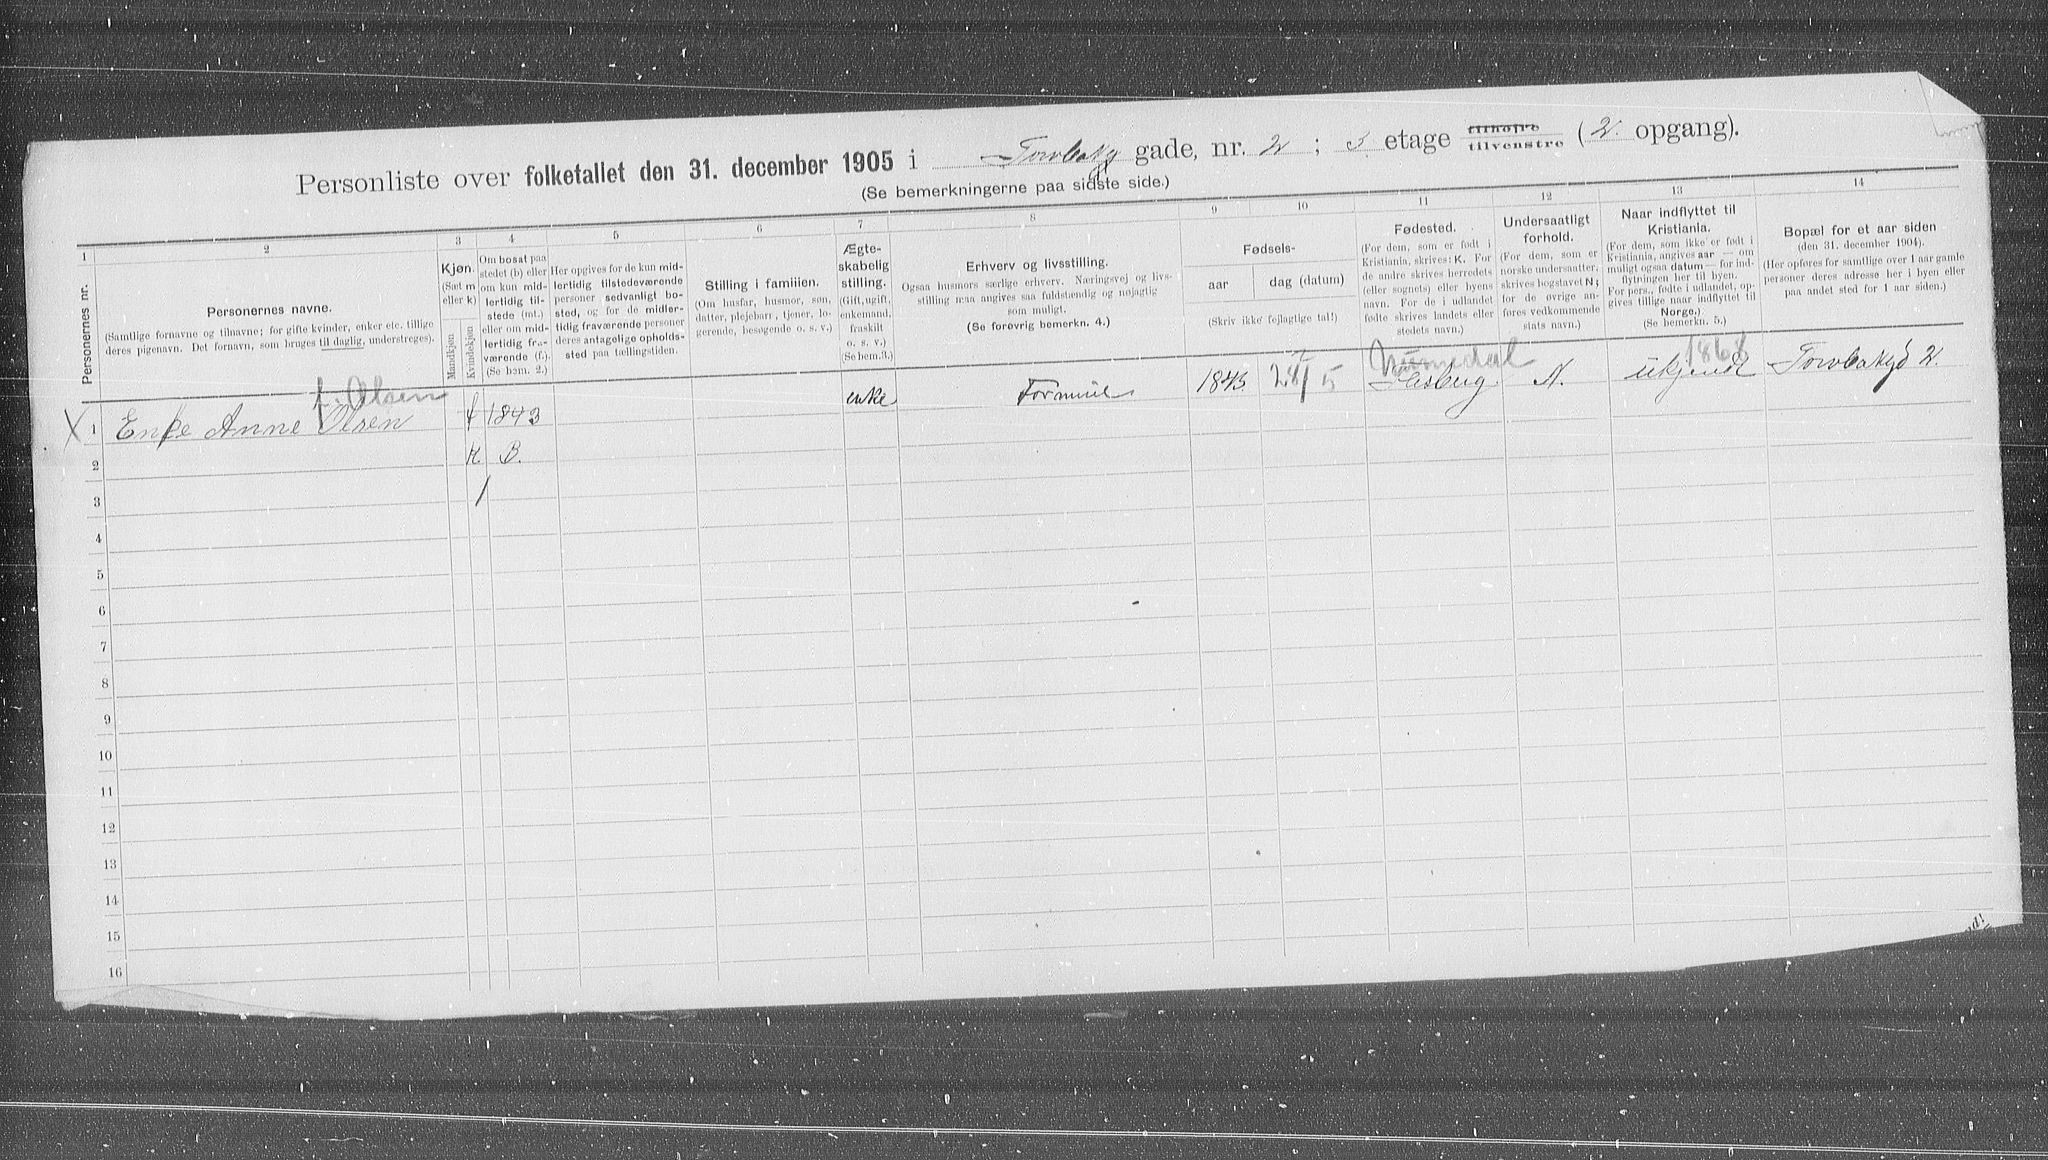 Personliste over folketallet den 31. december 1905 i Torvbakg gade, nr. 2 ; etage tilhøire tilvenstre (2. opgang).
(Se bemerkningerne paa sidste side.)
1 2 3 4 5 6 7 8 9 10 11 12 13 14
Personernes nr.
Personernes navne.
(Samtlige fornavne og tilnavne; for gifte kvinder, enker etc. tillige
deres pigenavn. Det fornavn, som bruges til daglig, understreges).
Kjøn.
(Sæt m
eller k)
Mandkjøn
Kvindekjøn
Om bosat paa
stedet (b) eller
om kun mid-
lertidig til-
stede (mt.)
eller om mid-
lertidig fra-
værende (f.)
(Se bem. 2.)
Her opgives for de kun mid-
lertidig tilstedeværende
personer sedvanligt bo-
sted, og for de midler-
tidig fraværende personer
deres antagelige opholds-
sted paa tællingstiden.
Stilling i familien.
(Om husfar, husmor, søn,
datter, plejebarn, tjener, lo-
gerende, besøgende o. s. v.)
Ægte-
skabelig
stilling.
(Gift, ugift,
enkemand,
fraskilt
o. s. v.)
(Se bem.3.)
Erhverv og livsstilling.
Ogsaa husmors særlige erhverv. Næringsvej og livs-
stilling maa angives saa fuldstændig og nøjagtig
som muligt.
(Se forøvrig bemerkn. 4.)
Fødsels-
aar
dag (datum)
(Skriv ikke fejlagtige tal!)
Fødested.
(For dem, som er født i
Kristiania, skrives: K. For
de andre skrives herredets
(eller sognets) eller byens
navn. For de i udlandet
fødte skrives landets eller
stedets navn.)
Undersaatligt
forhold.
(For dem, som er
norske undersaatter,
skrives bogstavet N;
for de øvrige an-
føres vedkommende
stats navn.)
Naar indflyttet til
Kristiania.
(For dem, som ikke er født i
Kristiania, angives aar — om
muligt ogsaa datum — for ind-
flytningen her til byen.
For pers., fødte i udlandet, op-
gives tillige naar indflyttet til
Norge.)
(Se bemerkn. 5.)
Bopæl for et aar siden
(den 31. december 1904).
(Her opføres for samtlige over 1 aar gamle
personer deres adresse her i byen eller
paa andet sted for 1 aar siden.)
f. Olsen Numedal 1868
X 1 Enke Anne Olsen 1843 enke Formue 1843. 28/5 N. ukjendt Torvbakgd 2.
2 K B.
3 1
4
5
6
7
8
9
10
11
12
13
14
15
16